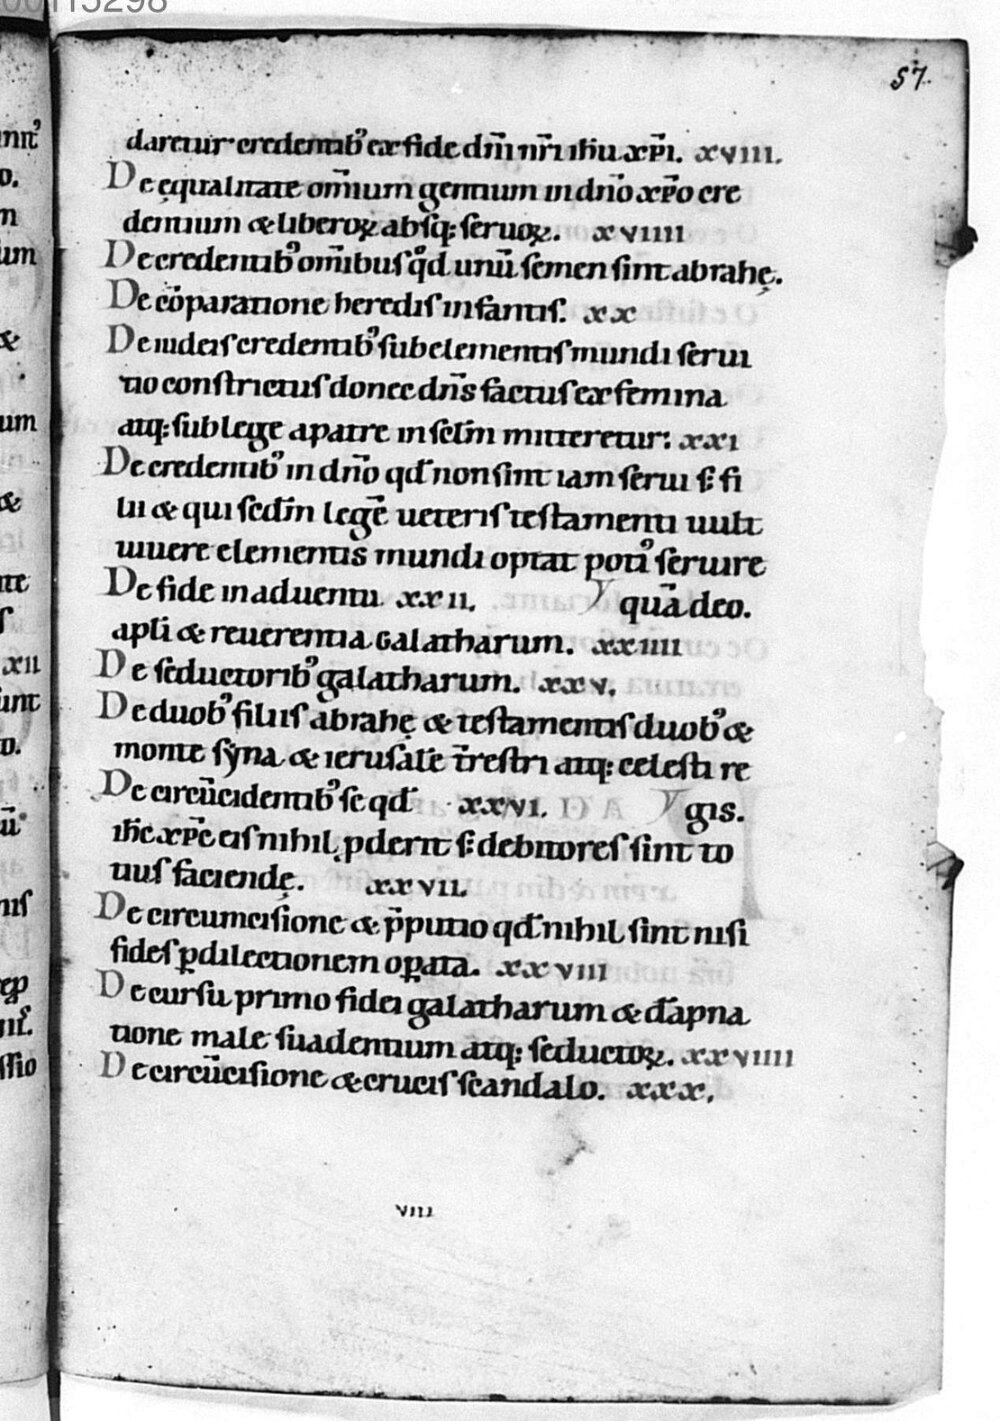 57.
daretur credentibꝰ ex fide dn̄i nr̄i ih̄u xp̄i. xviii.
De ęqualitate om̄ium gentium in dn̄o xp̄o cre
dentium & liberoꝝ absq; seruoꝝ. xviiii
De credentibꝰ om̄ibus qd̄ unū semen sint abrahę.
De cōparatione heredis infantis. xx
De iudeis credentibꝰ sub elementis mundi serui
tio constrictus donec dn̄s factus ex femina
atq; sub lege a patre in sclm̄ mitteretur: xxi
De credentibꝰ in dn̄o qd̄ non sint iam serui s; fi
lii & qui scdm̄ legē ueteris testamenti uult
uiuere elementis mundi optat potiꝰ seruire
De fide in aduentu xxii. quā deo.
apli & reuerentia galatharum. xxiiii
De seductoribꝰ galatharum. xxv.
De duobꝰ filiis abrahę & testamentis duobꝰ &
monte syna & ierusalē t̄restri atq; celesti re
De circūcidentibꝰ se qd̄ xxvi. gis.
ih̄c xp̄c eis nihil ꝓderit s; debitores sint to
tius faciendę. xxvii.
De circumcisione & p̄putio qd̄ nihil sint nisi
fides ꝑ dilectionem oꝑata. xxviii
De cursu primo fidei galatharum & d̄apna
tione male suadentium atq; seductoꝝ. xxviiii
De circūcisione & crucis scandalo. xxx.
viii